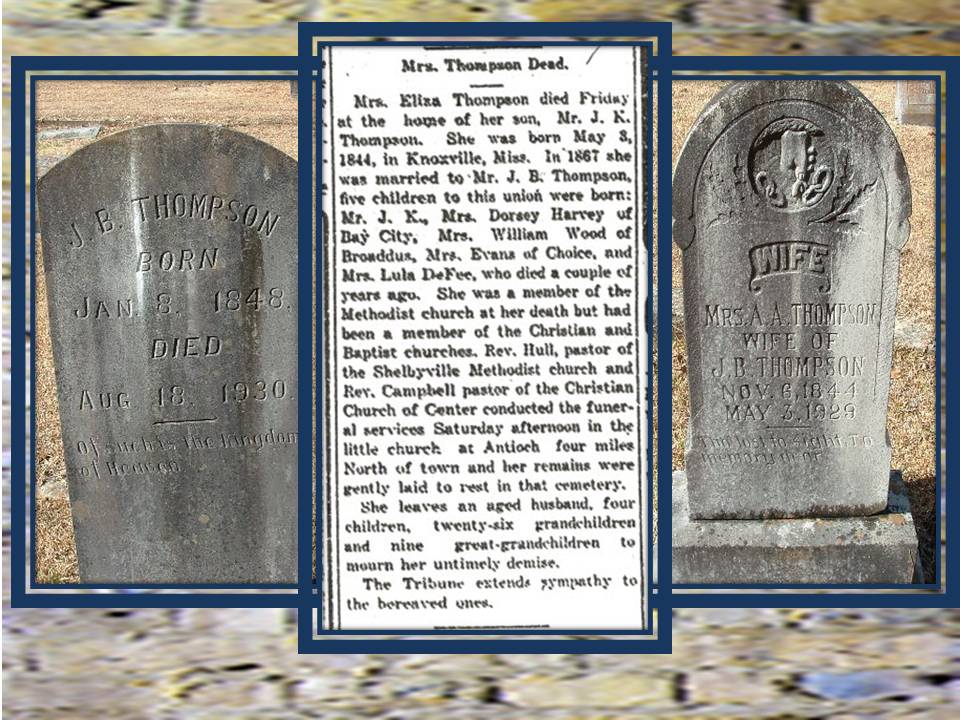 J. B. THOMPSON
BORN
JAN. 8. 1848.
DIED
AUG 18. 1930.
Of such is the kingdom
of Heaven
Mrs. Thompson Dead.
Mrs. Eliza Thompson died Friday
at the home of her son, Mr. J. K.
Thompson. She was born May 3,
1844, in Knoxville, Miss. In 1867 she
was married to Mr. J. B. Thompson,
five children to this union were born:
Mr. J. K., Mrs. Dorsey Harvey of
Bay City, Mrs. William Wood of
Broaddus, Mrs. Evans of Choice, and
Mrs. Lula DeFee, who died a couple of
years ago. She was a member of the
Methodist church at her death but had
been a member of the Christian and
Baptist churches. Rev. Hull, pastor of
the Shelbyville Methodist church and
Rev. Campbell pastor of the Christian
Church of Center conducted the funer-
al services Saturday afternoon in the
little church at Antioch four miles
North of town and her remains were
gently laid to rest in that cemetery.
She leaves an aged husband, four
children, twenty-six grandchildren
and nine great-grandchildren to
mourn her untimely demise.
The Tribune extends sympathy to
the bereaved ones.
WIFE
MRS. A. A. THOMPSON
WIFE OF
J. B. THOMPSON
NOV. 6, 1844
MAY 3, 1929
Tho lost to sight, To
memory dear